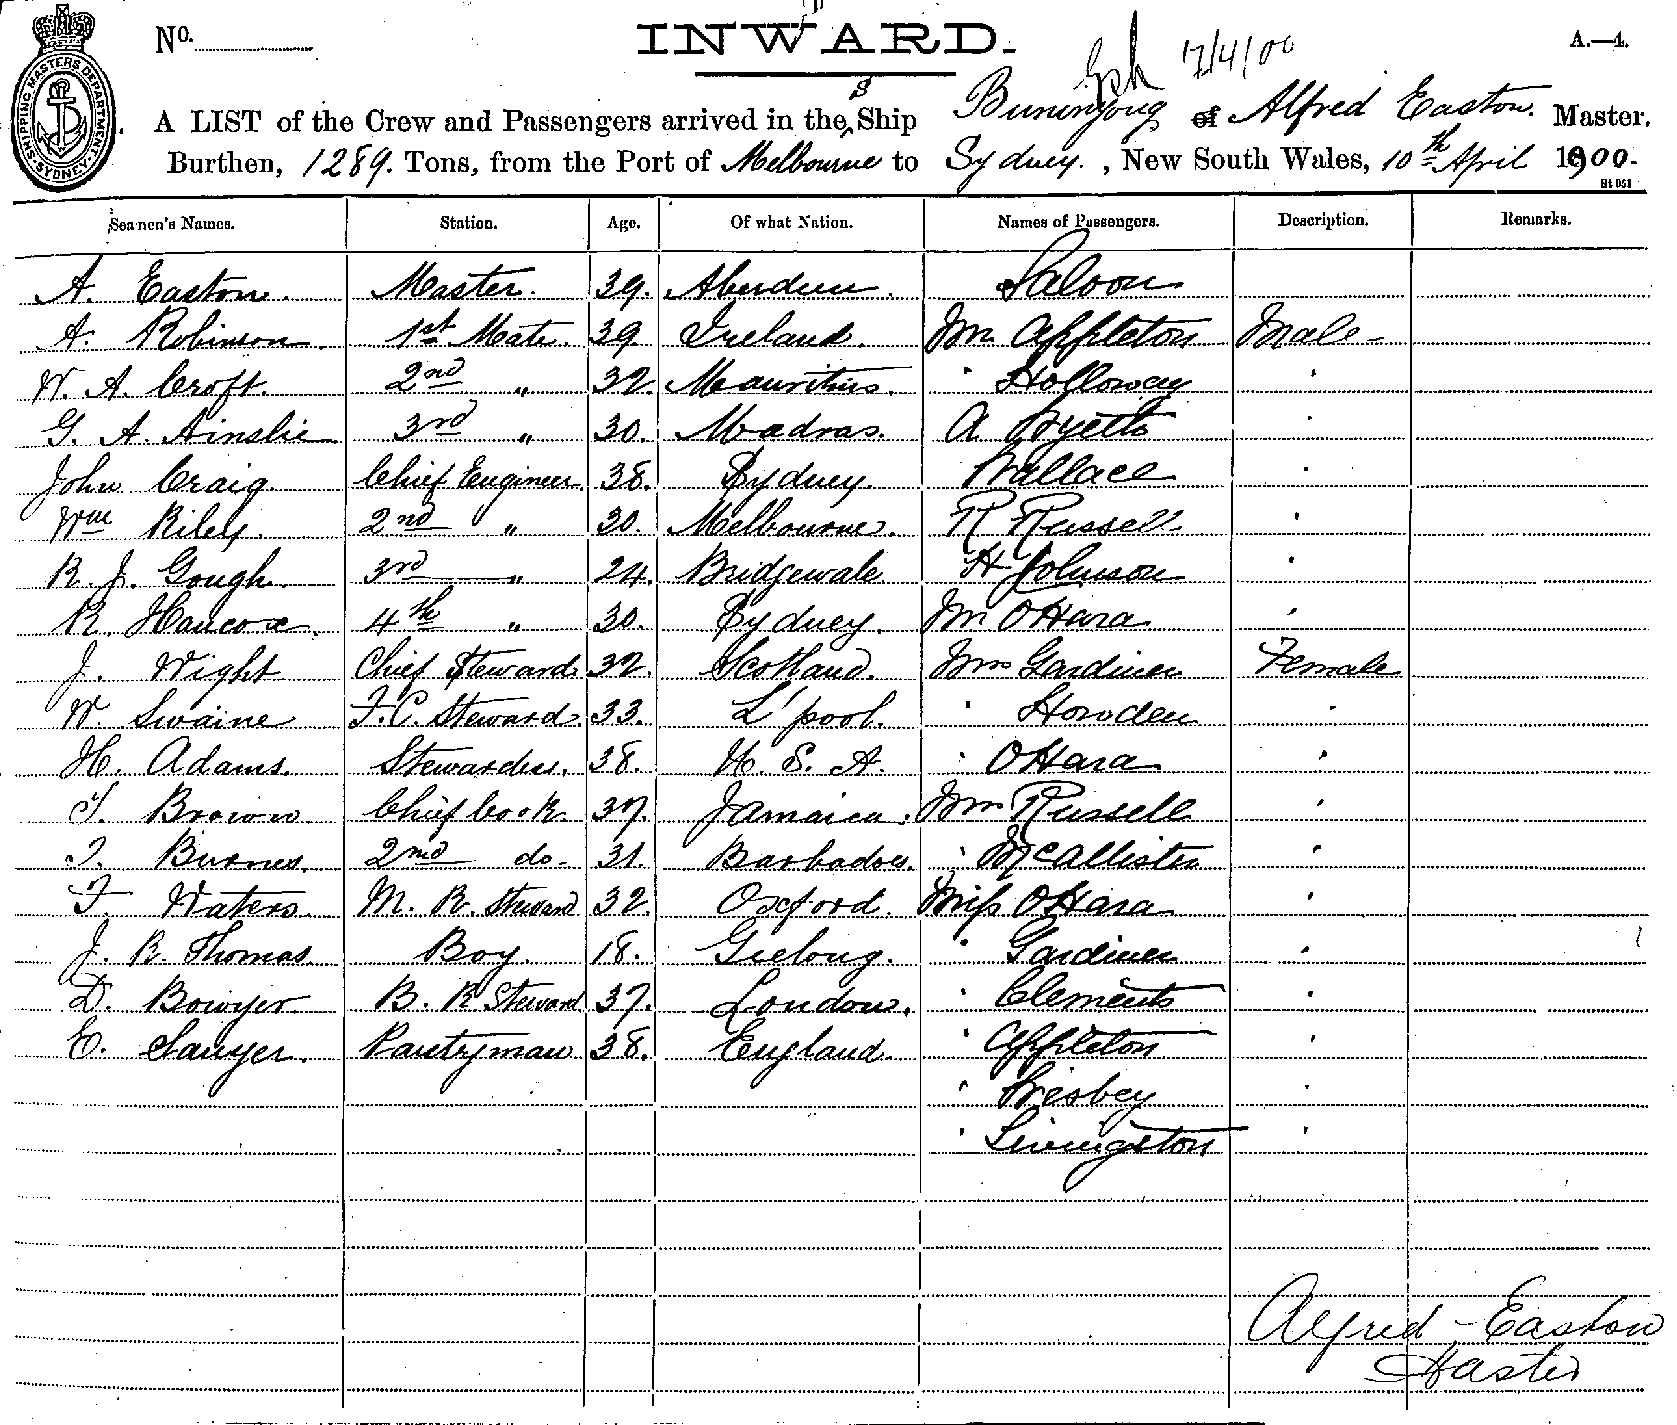 No.
INWARD.
17/4/00
A.—4.
SHIPPING MASTERS DEPARTMENT SYDNEY
A LIST of the Crew and Passengers arrived in the S Ship Buninyong of Alfred Easton. Master,
Burthen, 1289. Tons, from the Port of Melbourne to Sydney., New South Wales, 10th April 1900.
Seamen's Names. Station. Age. Of what Nation. Names of Passengers. Description. Remarks.
A. Easton. Master. 39. Aberdeen. Saloon
A. Robinson. 1st Mate. 39 Ireland. Mr Appleton Male
W. A. Croft. 2nd " 32. Mauritius. " Holloway "
G. A. Ainslie 3rd " 30. Madras. A "
John Craig. Chief Engineer. 38. Sydney. Wallace "
Wm Riley. 2nd " 30. Melbourne. R Russell "
R. J. Gough. 3rd " 24. Bridgewate H Johnson "
R. Hancox. 4th " 30. Sydney. Mr OHara "
J. Wight Chief Steward. 32. Scotland. Mrs Gardiner Female
W. Swaine F.C. Steward. 33. L'pool. " Howden "
H. Adams. Stewardess. 38. U. S. A. " OHara "
T. Brown Chief Cook. 37. Jamaica. Mrs Russell "
J. Burnes. 2nd do- 31. Barbadoes. " McAllister "
F. Waters. M. R. Steward 32. Oxford. Miss OHara "
J. R. Thomas. Boy. 18. Geelong. " Gardiner "
D. Bowyer B. R Steward 37. London. " Clements "
E. Sawyer. Pantryman 38. England. " Appleton "
" "
" Livingston "
Alfred Easton
Master